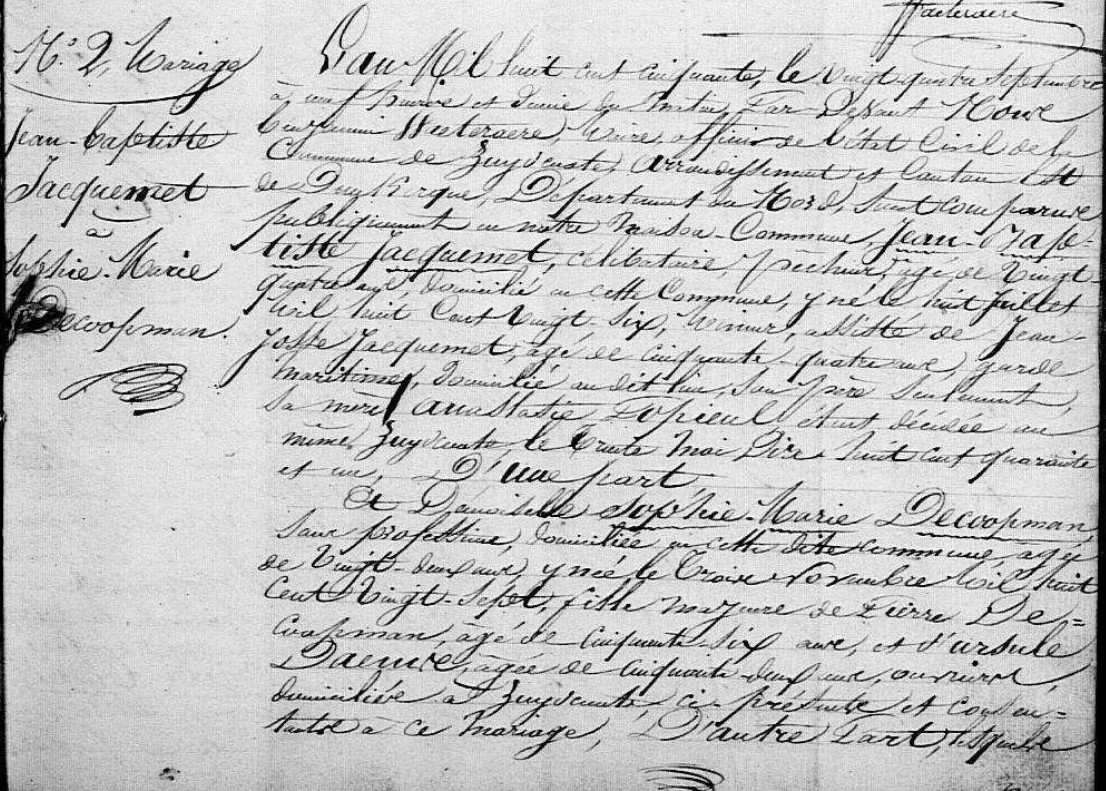 N.° 2, Mariage
Jean-Baptiste
Jacquemet
à
Sophie-Marie
Decoopman.
L'an Mil huit cent cinquante, le vingt-quatre Septembre
à neuf heures et demie du matin, Par-Devant Nous
Benjamin Waeteraere, Maire, officier de l'état Civil de la
Commune de Zuydcoote, Arrondissement et Canton Est
de Dunkerque, Département du Nord, sont comparus
publiquement en notre Maison-Commune, Jean-Bap-
tiste Jacquemet, célibataire, pêcheur, âgé de Vingt-
quatre ans, domicilié en cette Commune, y né le huit juillet
Mil huit Cent Vingt-six, Mineur, assisté de Jean-
Josse Jacquemet, âgé de cinquante-quatre ans, garde
maritime, domicilié audit lieu, son père seulement,
sa mère, Anastasie, étant décédée au
même Zuydcoote, le trente Mai Dix huit cent quarante
et un, D'une part,
Et Demoiselle Sophie-Marie Decoopman,
sans profession, domiciliée en cette dite commune, âgée
de Vingt-deux ans, y née le trois Novembre Mil huit
Cent Vingt-Sept, fille majeure de Pierre De=
coopman, âgé de cinquante-six ans, et d'ursule
Daenue, âgée de cinquante-deux ans, ouvriers,
domiciliés à Zuydcoote, ci-présents et consen=
tants à ce mariage, D'autre Part, lesquels